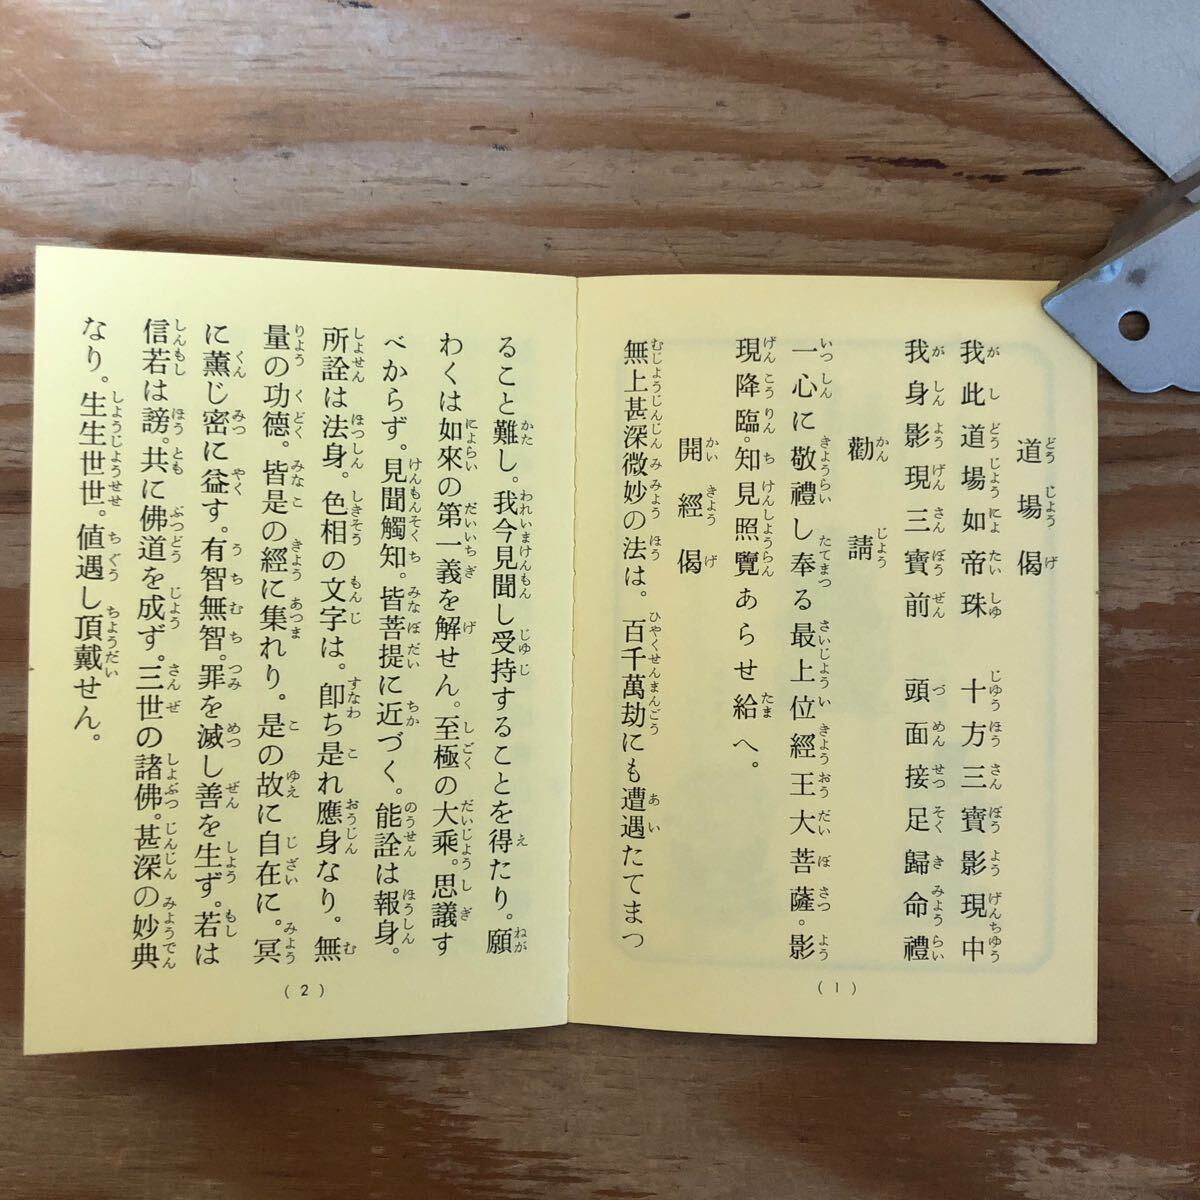 道場偈
我此道場如帝珠　十方三寶影現中
我身影現三寶前　頭面接足歸命禮
勸請
一心に敬禮し奉る最上位經王大菩薩。影
現降臨。知見照覽あらせ給へ。
開經偈
無上甚深微妙の法は。百千萬劫にも遭遇たてまつ
(1)
ること難し。我今見聞し受持することを得たり。願
わくは如來の第一義を解せん。至極の大乘。思議す
べからず。見聞觸知。皆菩提に近づく。能詮は報身。
所詮は法身。色相の文字は。卽ち是れ應身なり。無
量の功德。皆是の經に集れり。是の故に自在に。冥
に薰じ密に益す。有智無智。罪を滅し善を生ず。若は
信若は謗。共に佛道を成ず。三世の諸佛。甚深の妙典
なり。生生世世。値遇し頂戴せん。
(2)